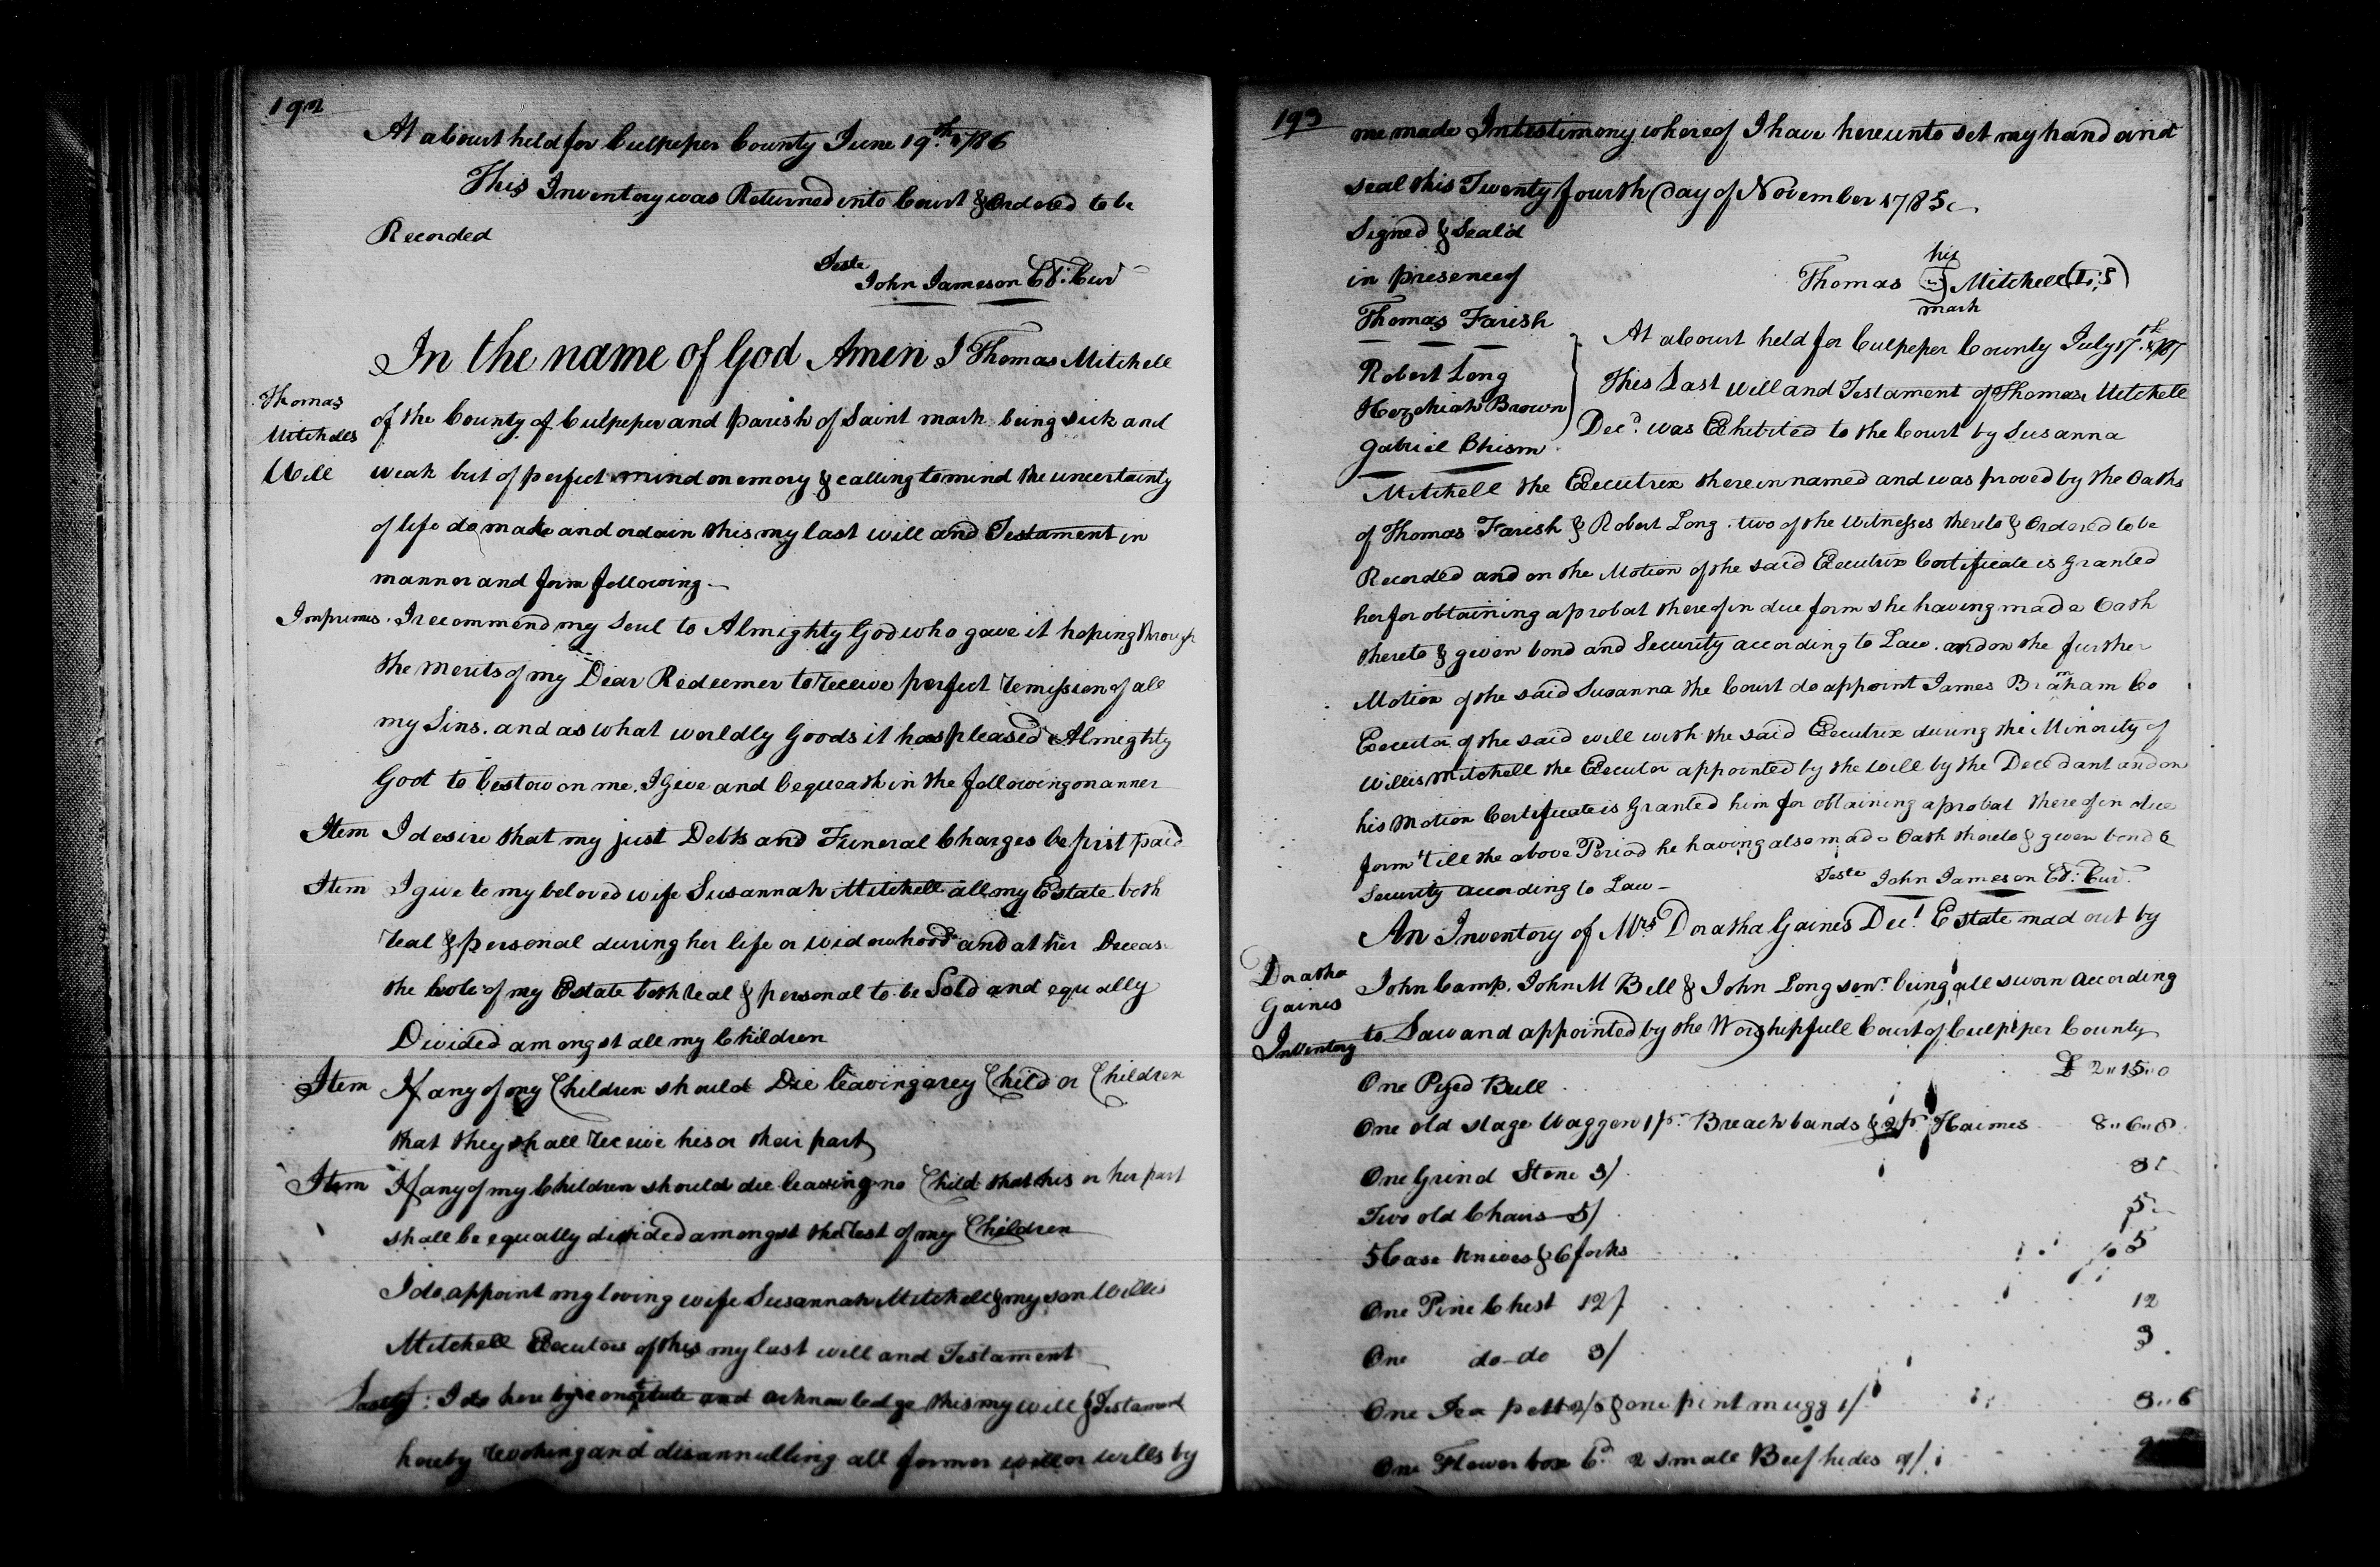 192
At a Court held for Culpeper County June 19th 1786
This Inventory was Returned into Court & Ordered to be
Recorded
Teste
John Jameson Cl. Cur
In the name of God Amen I Thomas Mitchell
Thomas
Mitchells
Will
of the County of Culpeper and parish of Saint mark being sick and
weak but of perfect mind memory & calling to mind the uncertainty
of life do make and ordain this my last will and Testament in
manner and form following
Imprimis. I recommend my Soul to Almighty God who gave it hoping through
the merits of my Dear Redeemer to receive perfect remission of all
my Sins. and as what worldly Goods it has pleased Almighty
God to bestow on me. I Give and bequeath in the following manner
Item I desire that my just Debts and Funeral Charges be first paid
Item I give to my beloved wife Susannah Mitchell all my Estate both
real & personal during her life or widowhood and at her Deceas
the hole of my Estate both real & personal to be Sold and equally
Divided amongst all my Children
Item If any of my Children should Die leaving any Child or Children
that they shall receive his or their part
Item If any of my Children should die leaving no Child that his or her part
shall be equally divided amongst the rest of my Children
I do appoint my loving wife Susannah Mitchell & my son Willis
Mitchell Executors of this my last will and Testament
Lastly: I do hereby constitute and acknowledge this my will & Testament
hereby revoking and disannulling all former will or wills by
193
me made In testimony whereof I have hereunto set my hand and
seal this Twenty fourth Day of November 1785
Signed & Seal'd
in presence of
his
Thomas Mitchell (L.S)
mark
Thomas Farish
Robert Long
Hezekiah Brown
Gabriel Chism
At a Court held for Culpeper County July 17th 1786
This Last will and Testament of Thomas Mitchell
Decd. was Exhibited to the Court by Susanna
Mitchell the Executrix therein named and was proved by the Oaths
of Thomas Farish & Robert Long two of the Witnesses thereto & Ordered to be
Recorded and on the Motion of the said Executrix Certificate is Granted
her for obtaining a probat thereof in due form she having made Oath
thereto & given bond and Security according to Law. and on the further
Motion of the said Susanna the Court do appoint James Bramham Co
Executor of the said will with the said Executrix during the Minority of
Willis Mitchell the Executor appointed by the will by the Decedant and on
his Motion Certificate is Granted him for obtaining a probat thereof in due
form 'till the above Period he having also made Oath thereto & given bond &
Security according to Law
Teste John Jameson Cl. Cur.
An Inventory of Mrs Doratha Gaines Decd. Estate mad out by
Doratha
Gaines
Inventory
John Camp. John M Bell & John Long senr. being all sworn according
to Law and appointed by the Worshipfull Court of Culpeper County
One Pyed Bull £ 2" 15" 0
One old stage Waggon 1 pr. Breach bands & 2 pr Haimes 8" 6" 8
One Grind Stone 3/ 3
Two old Chairs 5/ 5
5 Case Knives & 6 forks 5
One Pine Chest 12/ 12
One do-do 3/ 3
One Tea pott 2/6 & one pint mugg 1/ 3" 6
One Flower box 2 small Beef hides